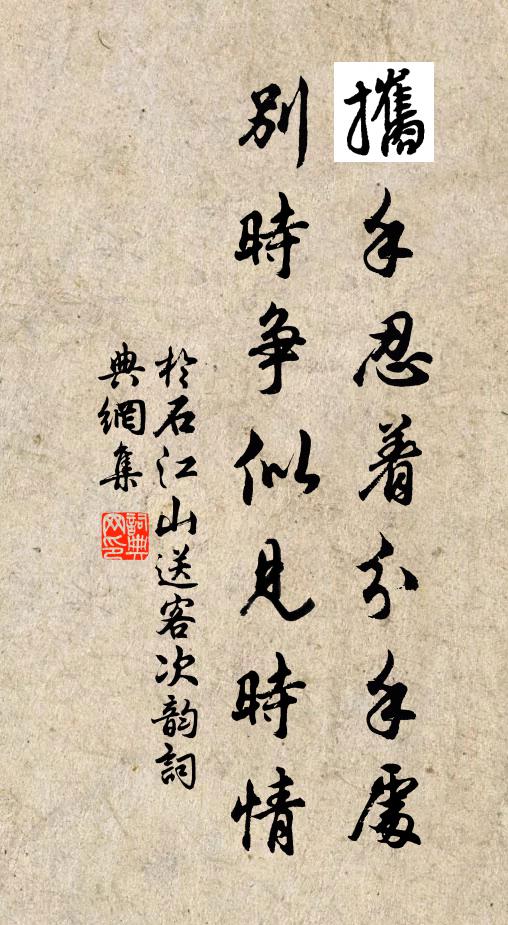 攜手忍着分手處
別時争似見時情
於石江山送客次韵詞
典網集
詞典網印